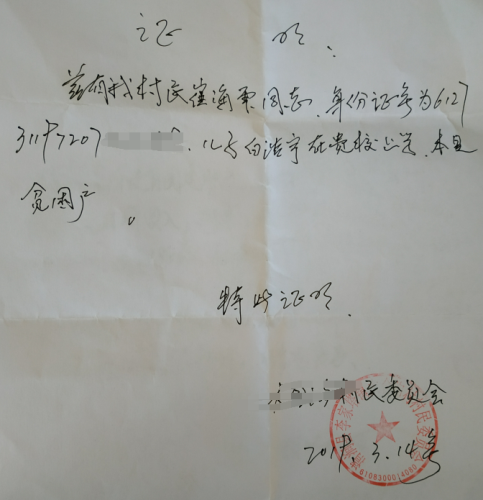 证 明
兹有我村民崔海军同志,身份证号为6127
31197207 儿子白浩宇在贵校上学,本是
贫困户。
特此证明.
村民委员会
2019.3.14号
6108300014095